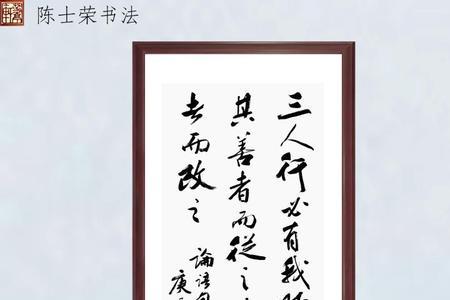 陈士荣书法
三人行必有我
其善者而從之
者而改之
論語句
庚